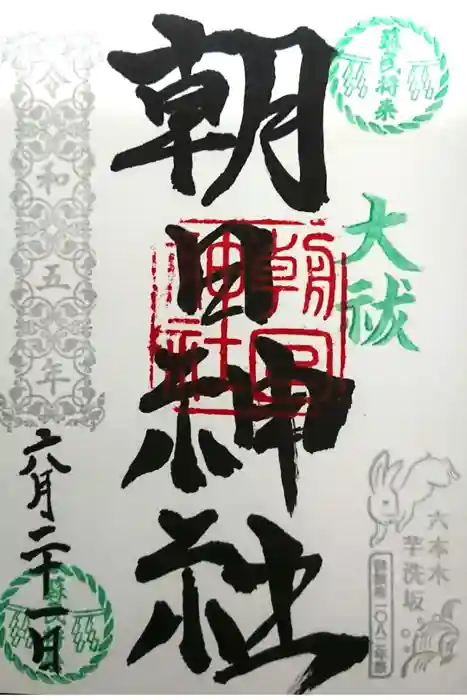 蘇民将来
大祓
朝日神社
朝日
神社
令和五年
六月二十一日
六本木
芋洗坂